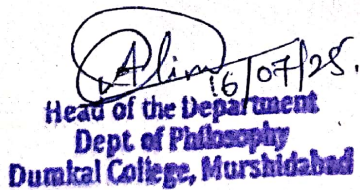 Alim
16/07/25.
Head of the Department
Dept. of Philosophy
Dumkal College, Murshidabad